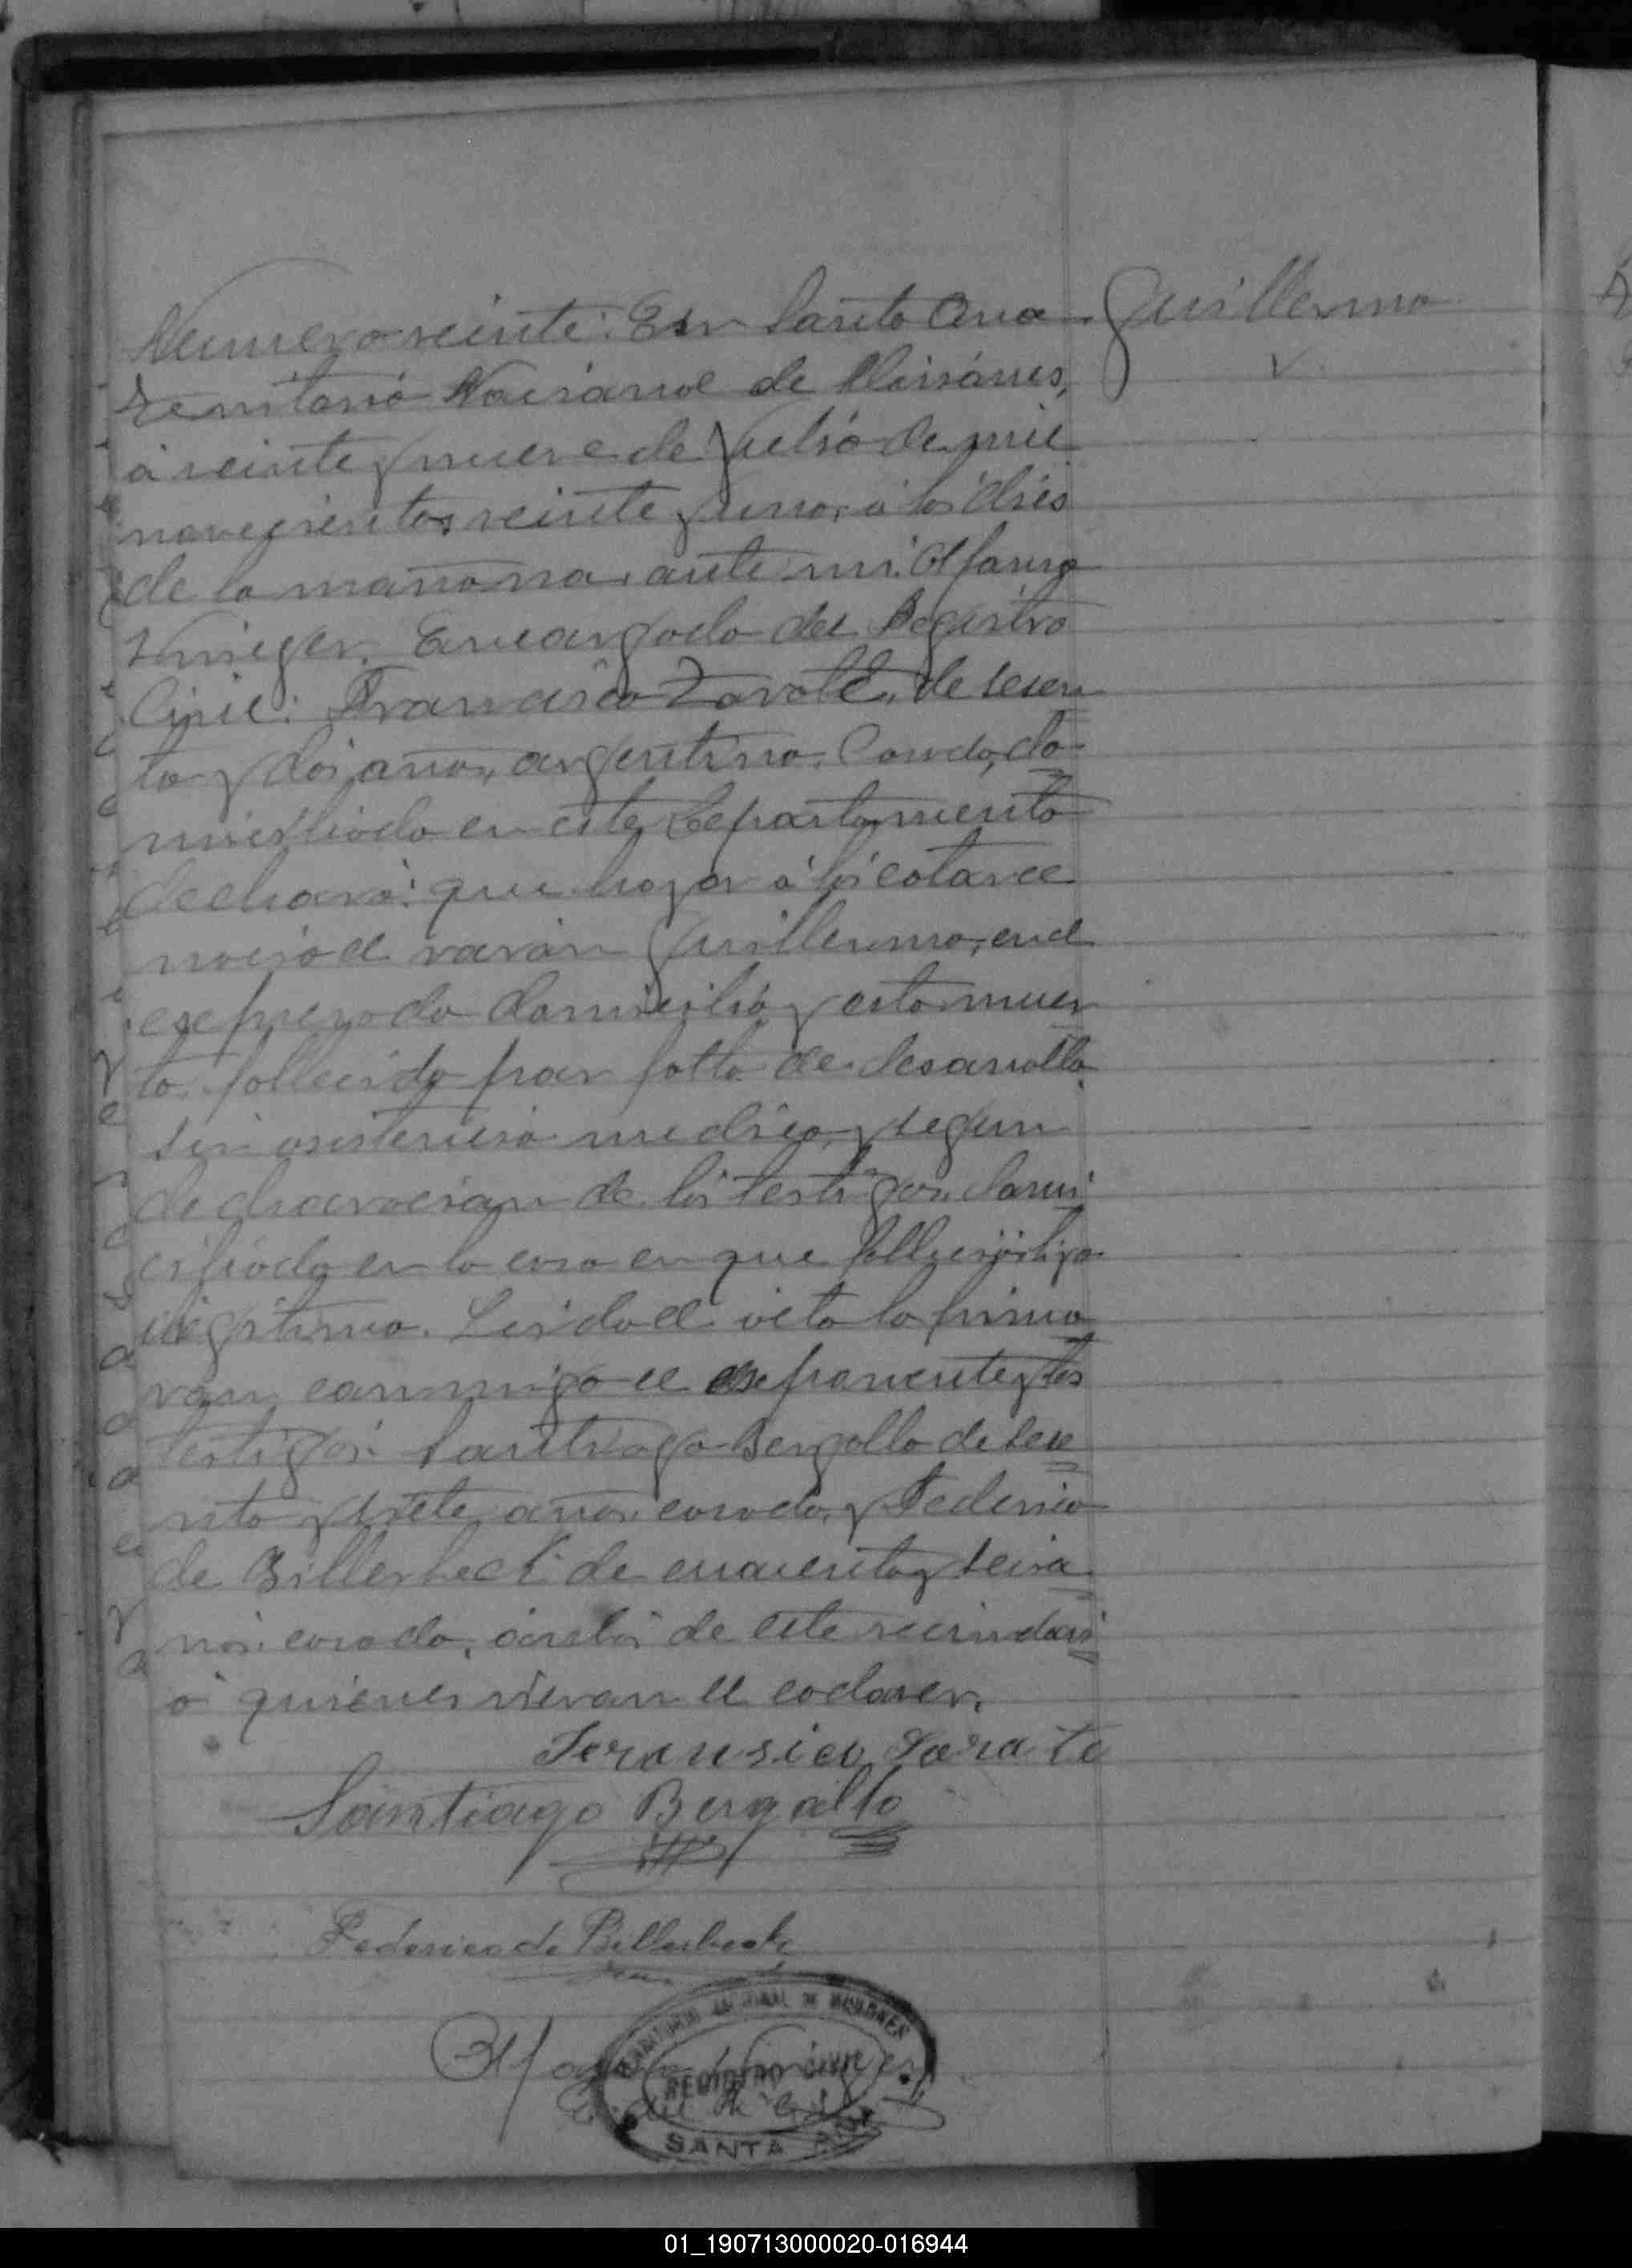 Numero veinte: En Santa Ana
Territorio Nacional de Misiones,
á veinte y nueve de Julio de mil
novecientos veinte y uno, á las diés
de la mañana, ante mi
Krieger, Encargado del Registro
Civil: Francisco Zarate, de sesen
ta y dos años, argentino, Casado, do
miciliado en este Departamento
declaró: que hoy á las catorce
nació el varón Guillermo, en el
expresado domicilio y esta muer
to, fallecido por falta de desarrollo
sin asistencia medica, y segun
declaracion de los testigos, domi
ciliado en la casa en que falleció, hijo
ilegitimo. Leida el acta la firma
ron conmigo el exponente y los
testigos: Santiago Bergallo de sese
nta y siete años, casado, y Federico
de Billerbeck de cuarenta y seis a
ños, casado, ambos de este vecindari
o quienes vieron el cadaver.
Fransico Sarate
Santiago Bergallo
Federico de Billerbeck
TERRITORIO NACIONAL DE MISIONES
REGISTRO CIVIL
SANTA ANA
Guillermo
V.
01_190713000020-016944